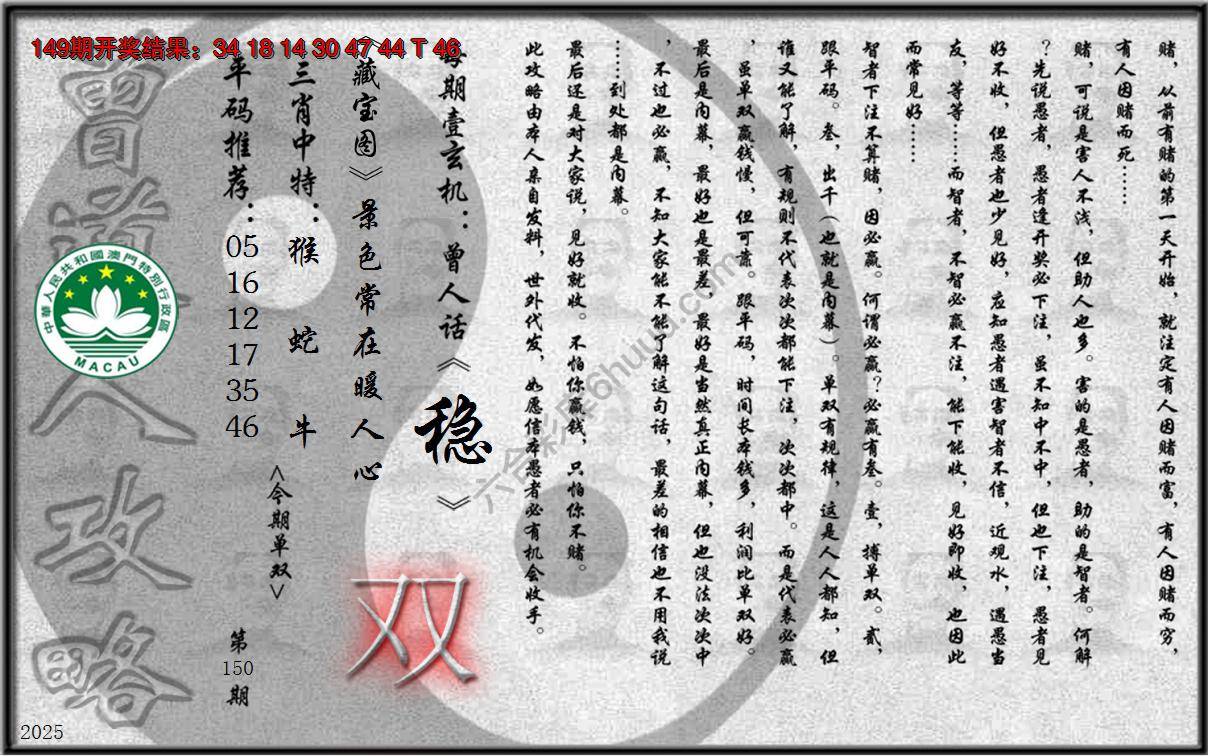 149期开奖结果：34 18 14 30 47 44 T 46
赌，从前有赌的第一天开始，就注定有人因赌而富，有人因赌而穷，
有人因赌而死……
赌，可说是害人不浅，但助人也多。害的是愚者，助的是智者。何解
？先说愚者，愚者逢开奖必下注，虽不知中不中，但也下注，愚者见
好不收，但愚者也少见好，应知愚者遇害智者不信，近观水，遇愚当
友，等等……而智者，不智必赢不注，能下能收，见好即收，也因此
而常见好……
智者下注不算赌，因必赢。何谓必赢？必赢有叁。壹，搏单双。贰，
跟平码。叁，出千（也就是内幕）。单双有规律，这是人人都知，但
谁又能了解，有规则不代表次次都能下注，次次都中。而是代表必赢
，虽单双赢钱慢，但可靠。跟平码，时间长本钱多，利润比单双好。
最后是内幕，最好也是最差，最好是当然真正内幕，但也没法次次中
，不过也必赢，不知大家能不能了解这句话，最差的相信也不用我说
……到处都是内幕。
最后还是对大家说，见好就收。不怕你赢钱，只怕你不赌。
此攻略由本人亲自发料，世外代发，如愿信本愚者必有机会收手。
每期壹玄机：曾人话《稳》
《藏宝图》景色常在暖人心
双
三肖中特：猴 蛇 牛
<今期单双>
平码推荐：05 16 12 17 35 46
第150期
曾道人攻略
中華人民共和國澳門特別行政區
MACAU
六合彩库6huuu.com
2025